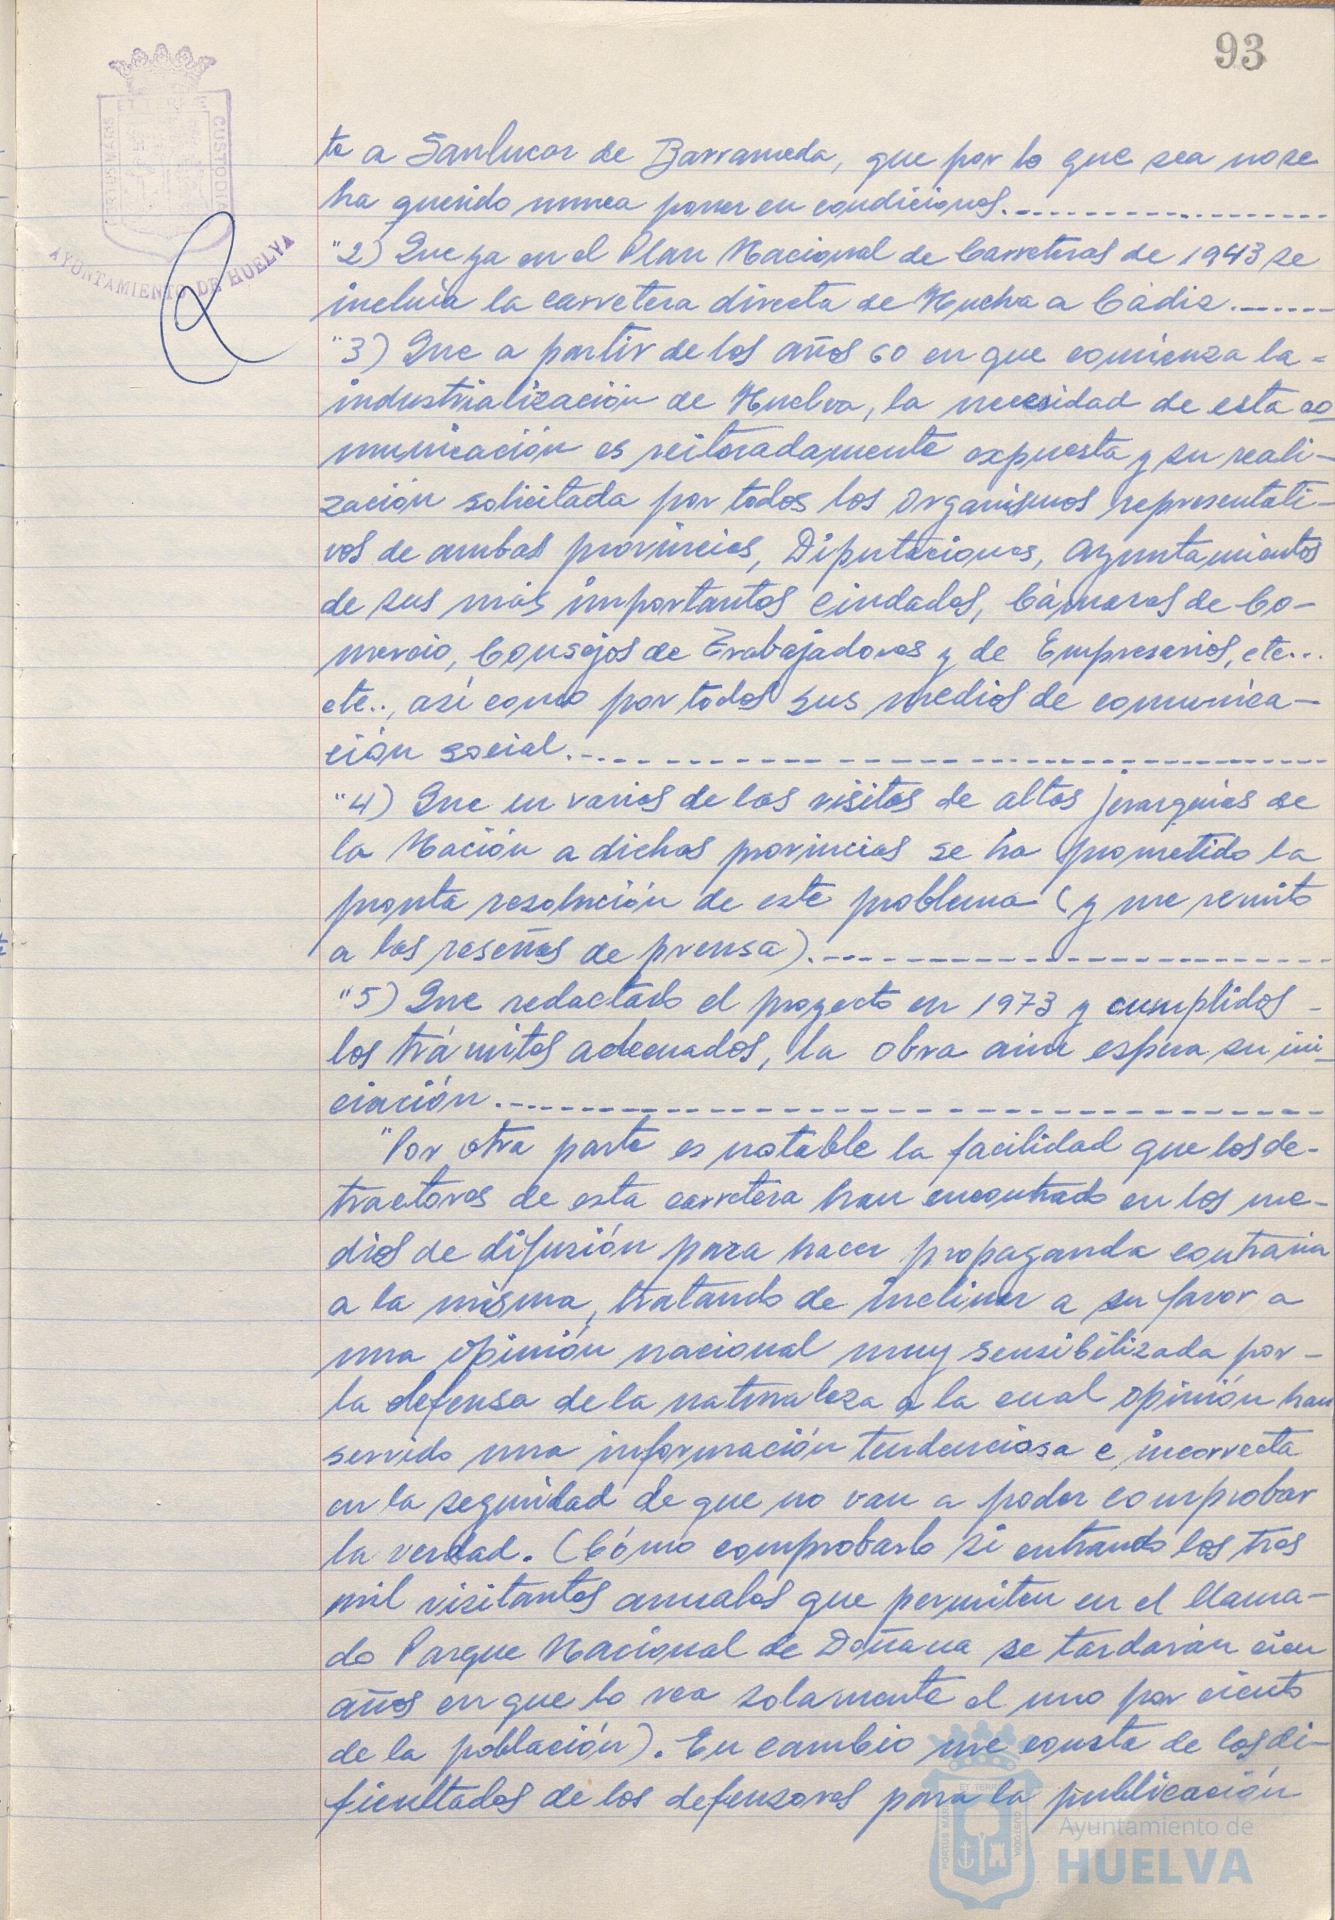 93
PORTUS MARIS ET TERRÆ CUSTODIA
AYUNTAMIENTO DE HUELVA
ta a Sanlucar de Barrameda, que por lo que sea no se
ha querido nunca poner en condiciones.
"2) Que ya en el Plan Nacional de Carreteras de 1943 se
incluía la carretera directa de Huelva a Cádiz.
"3) Que a partir de los años 60 en que comienza la=
industrialización de Huelva, la necesidad de esta co
municación es reiteradamente expuesta y su reali-
zación solicitada por todos los Organismos representati-
vos de ambas provincias, Diputaciones, Ayuntamientos
de sus más importantes ciudades, Cámaras de Co-
mercio, Consejos de Trabajadores y de Empresarios, etc...
etc.., así como por todos sus medios de comunica-
ción social.
"4) Que en varias de las visitas de altas jerarquías de
la Nación a dichas provincias se ha prometido la
pronta resolución de este problema (y me remito
a las reseñas de prensa).
"5) Que redactado el proyecto en 1973 y cumplidos -
los trámites adecuados, la obra aún espera su ini-
ciación.
"Por otra parte es notable la facilidad que los de-
tractores de esta carretera han encontrado en los me-
dios de difusión para hacer propaganda contraria
a la misma, tratando de inclinar a su favor a
una opinión nacional muy sensibilizada por -
la defensa de la naturaleza a la cual opinión han
servido una información tendenciosa e incorrecta
en la seguridad de que no van a poder comprobar
la verdad. (Cómo comprobarlo si entrando los tres
mil visitantes anuales que permiten en el llama-
do Parque Nacional de Doñana se tardarían cien
años en que lo vea solamente el uno por ciento
de la población). En cambio me consta de las di-
ficultades de los defensores para la publicación
PORTUS MARIS ET TERRÆ CUSTODIA
Ayuntamiento de
HUELVA